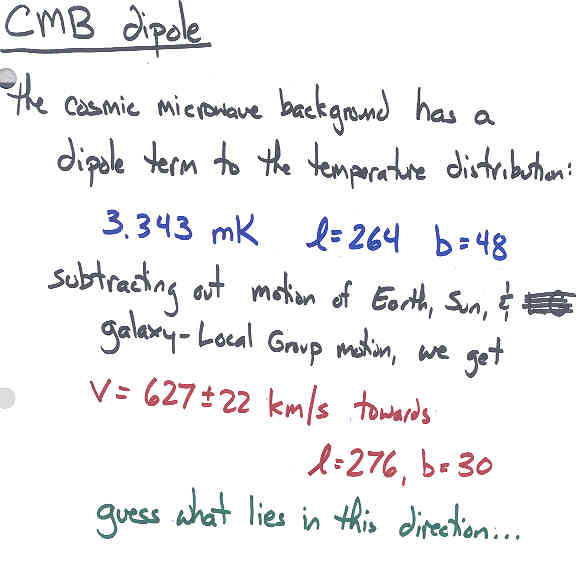 CMB dipole
the cosmic microwave background has a
dipole term to the temperature distribution:
3.343 mK l=264 b=48
subtracting out motion of Earth, Sun, &
galaxy-Local Group motion, we get
V= 627±22 km/s towards
l=276, b=30
guess what lies in this direction...